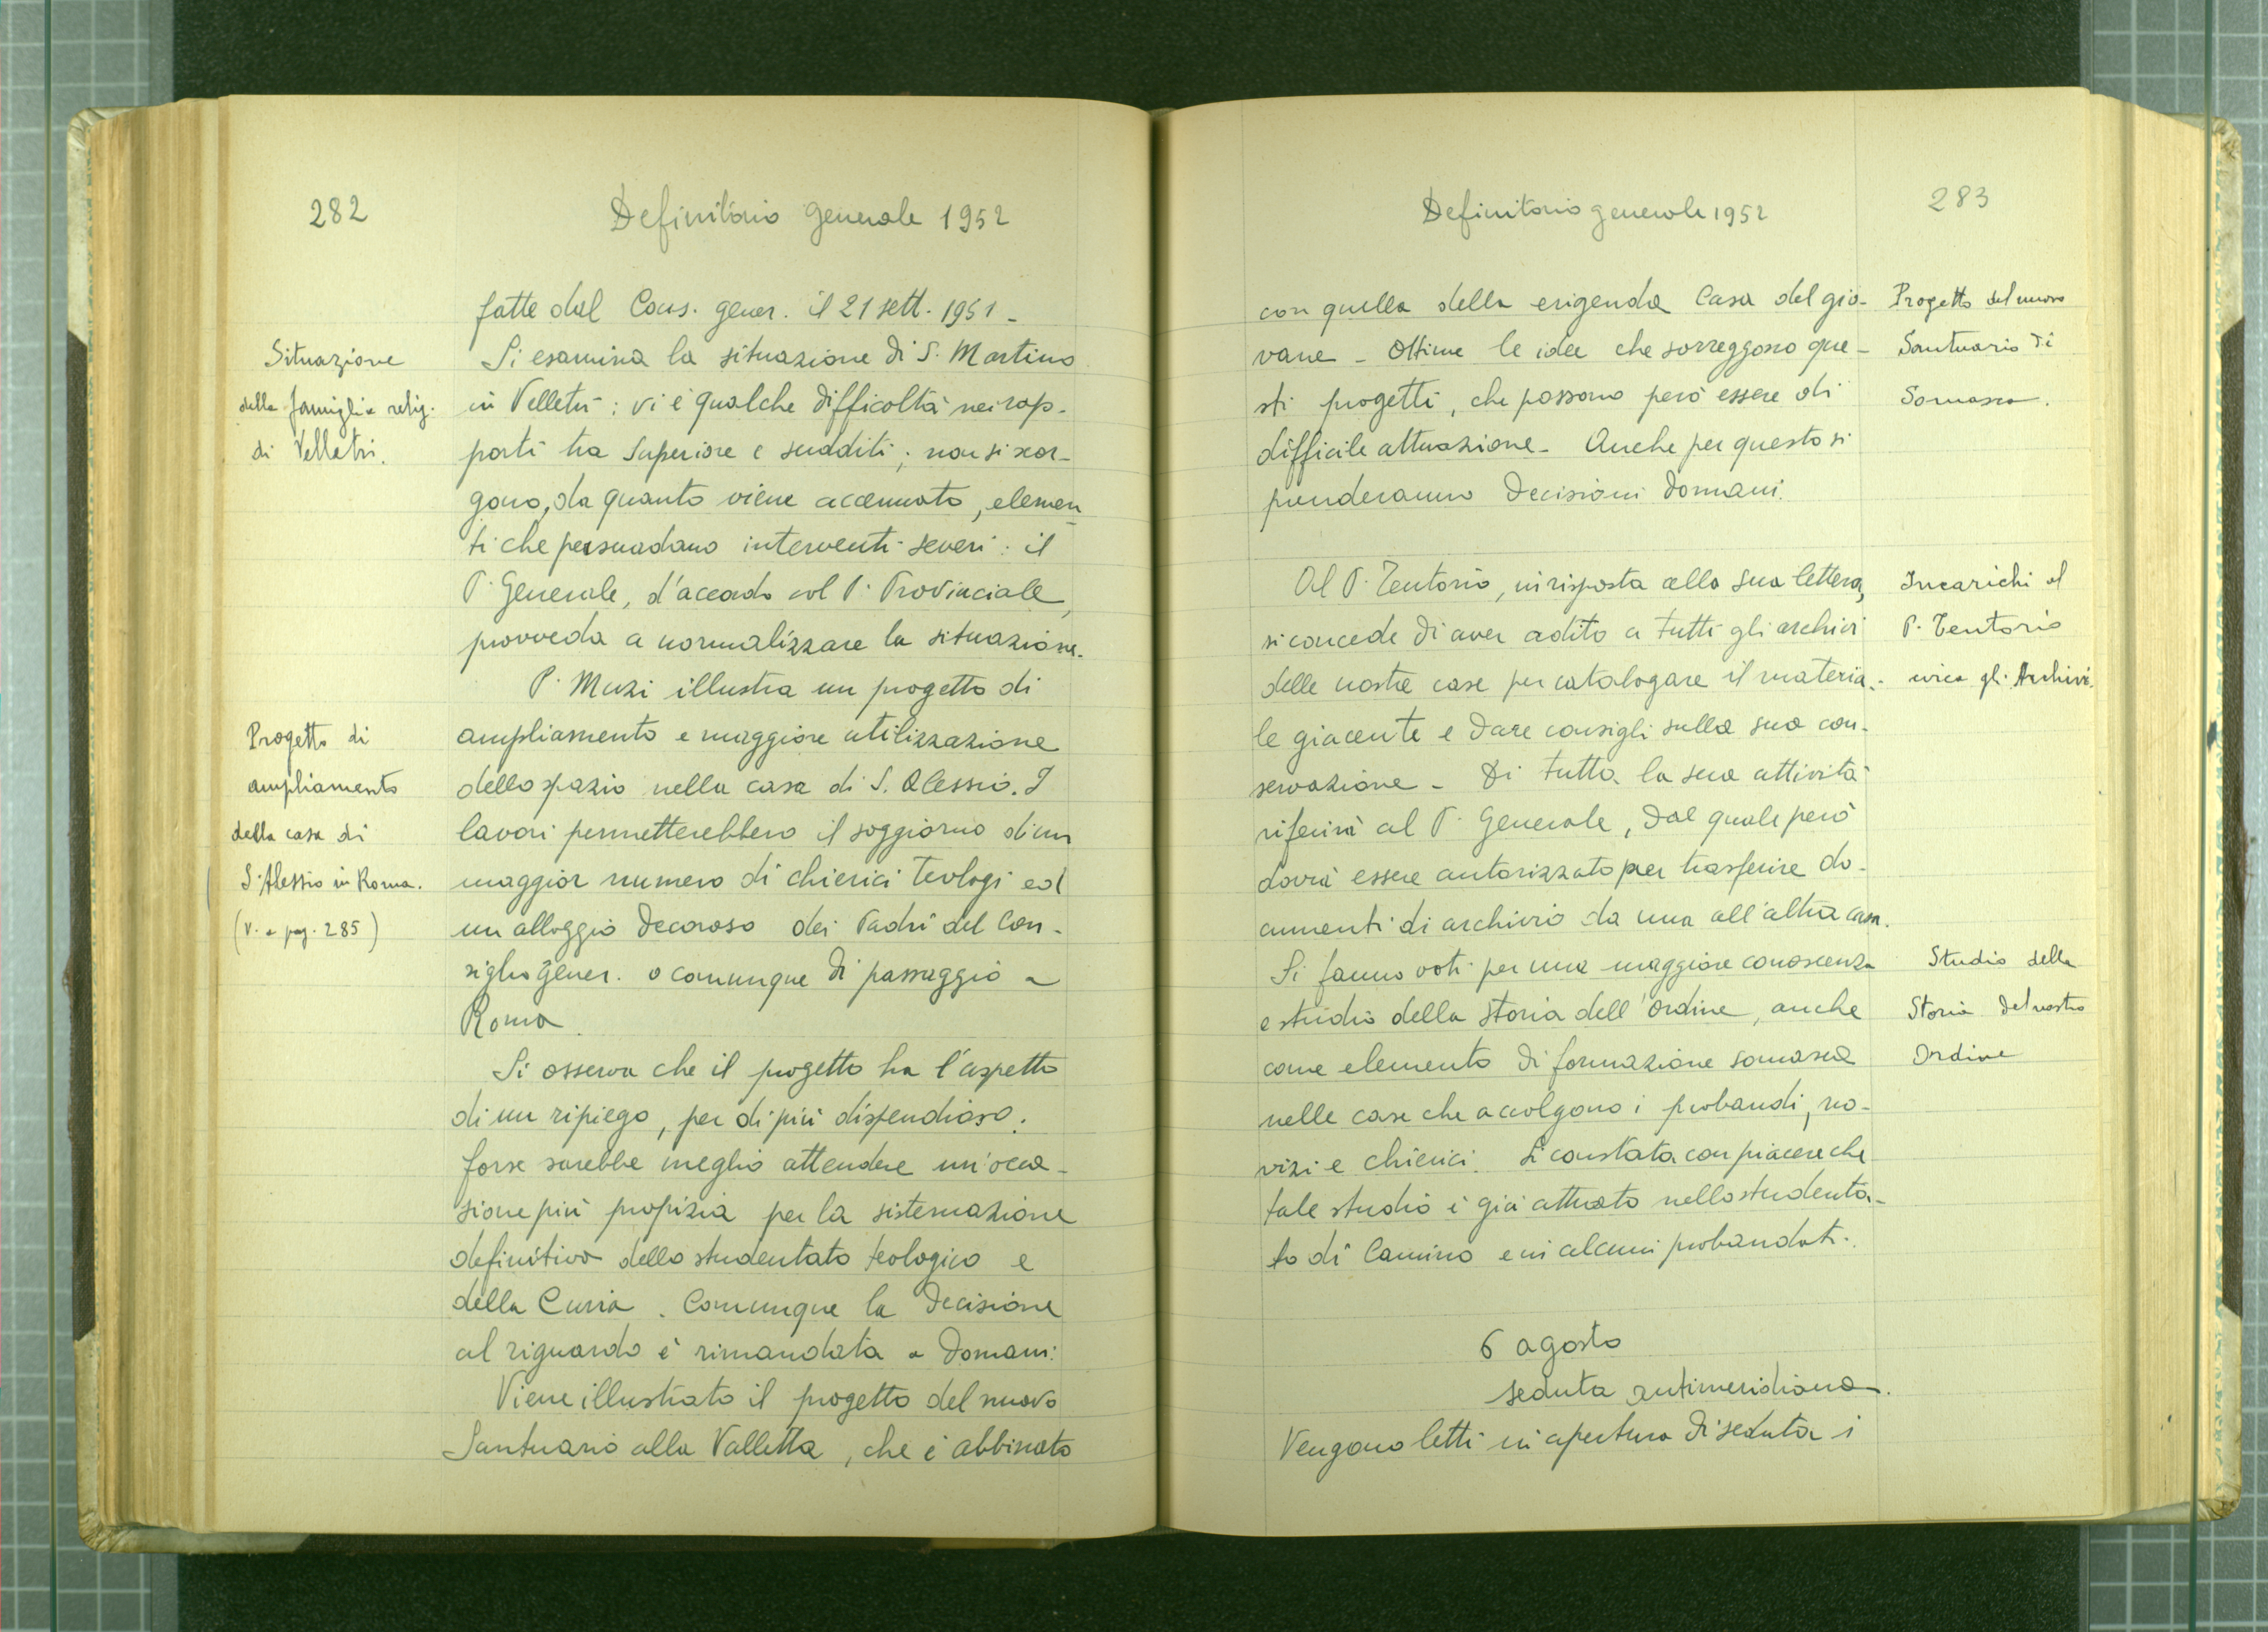 282
Definitorio generale 1952
fatte dal Cons. gener. il 21 sett. 1951 -
Situazione
della famiglia relig.
di Velletri.
Si esamina la situazione di S. Martino
in Velletri: vi è qualche difficoltà nei rap-
porti tra Superiore e sudditi; non si scor-
gono, da quanto viene accennato, elemen-
ti che persuadano interventi severi: il
P. Generale, d'accordo col P. Provinciale,
provveda a normalizzare la situazione.
P. Muzi illustra un progetto di
Progetto di
ampliamento
della casa di
S. Alessio in Roma.
(v. a pag. 285)
ampliamento e maggiore utilizzazione
dello spazio nella casa di S. Alessio. I
lavori permetterebbero il soggiorno di un
maggior numero di chierici teologi ed
un alloggio decoroso dei Padri del Con-
siglio gener. o comunque di passaggio a
Roma.
Si osserva che il progetto ha l'aspetto
di un ripiego, per di più dispendioso;
forse sarebbe meglio attendere un'occa-
sione più propizia per la sistemazione
definitiva dello studentato teologico e
della Curia. Comunque la decisione
al riguardo è rimandata a domani.
Viene illustrato il progetto del nuovo
Santuario alla Valletta, che è abbinato
283
Definitorio generale 1952
con quella della erigenda Casa del gio-
vane - Ottime le idee che sorreggono que-
sti progetti, che possono però essere di
difficile attuazione - Anche per questo si
prenderanno decisioni domani.
Progetto del nuovo
Santuario di
Somasca.
Al P. Tentorio, in risposta alla sua lettera,
si concede di aver adito a tutti gli archivi
delle nostre case per catalogare il materia-
le giacente e dare consigli sulla sua con-
servazione - Di tutta la sua attività
riferirà al P. Generale, dal quale però
dovrà essere autorizzato per trasferire do-
cumenti di archivio da una all'altra casa.
Incarichi al
P. Tentorio
circa gli Archivi.
Si fanno voti per una maggiore conoscenza
e studio della storia dell'Ordine, anche
come elemento di formazione somasca
nelle case che accolgono i probandi, no-
vizi e chierici. Si constata con piacere che
tale studio è già attuato nello studenta-
to di Camino e in alcuni probandati.
Studio della
Storia del nostro
Ordine
6 agosto
seduta antimeridiana.
Vengono letti in apertura di seduta i